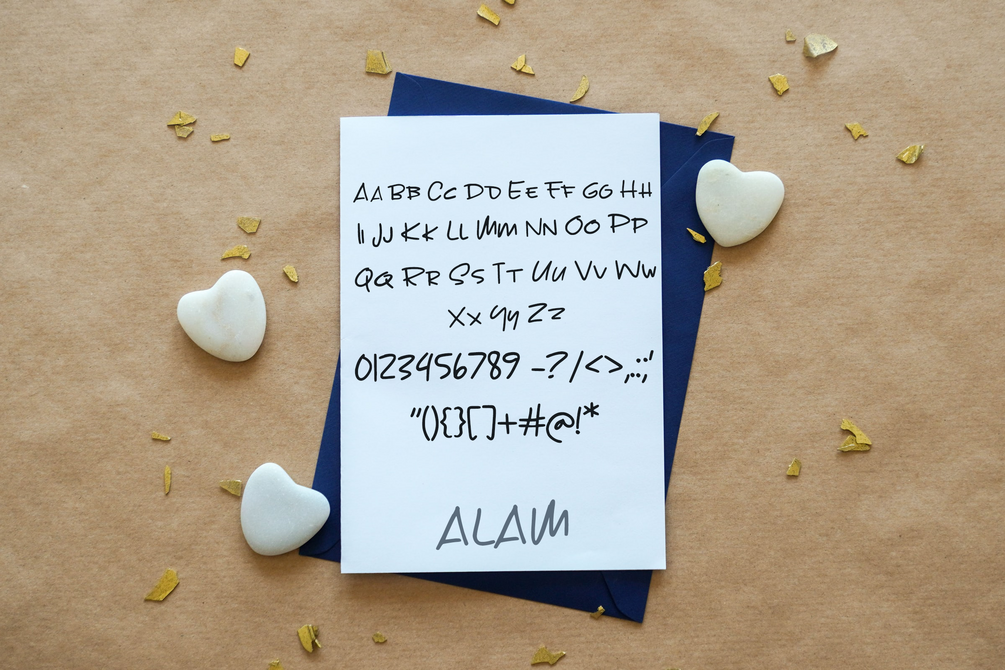 Aa Bb Cc Dd Ee Ff Gg Hh
Ii Jj Kk Ll Mm Nn Oo Pp
Qq Rr Ss Tt Uu Vv Ww
Xx Yy Zz
0123456789 -?/<>,.:;'
"(){}[]+#@!*
ALAM